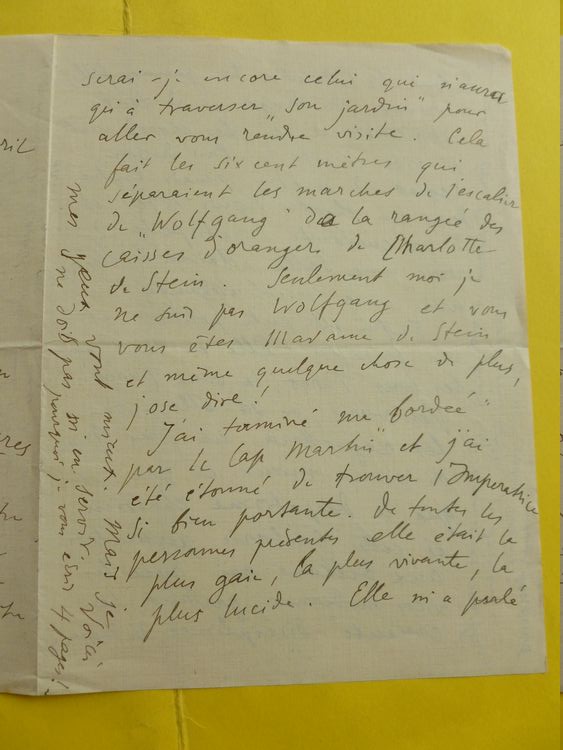 serai-je encore celui qui n'aura
qu'à traverser "son jardin" pour
aller vous rendre visite. Cela
fait les six cent mètres qui
séparaient les marches de l'escalier
de "Wolfgang" de la rangée des
caisses d'orangers de Charlotte
de Stein. Seulement moi je
ne suis pas Wolfgang et vous
vous êtes Madame de Stein
et même quelque chose de plus,
j'ose dire!
J'ai terminé ma "bordée"
par le Cap Martin et j'ai
été étonné de trouver l'Imperatrice
si bien portante. De toutes les
personnes présentes elle était la
plus gaie, la plus vivante, la
plus lucide. Elle m'a parlé
mes yeux vont mieux. Mais je
ne dois pas m'en servir. Voici
pourquoi je vous écris 4 pages!